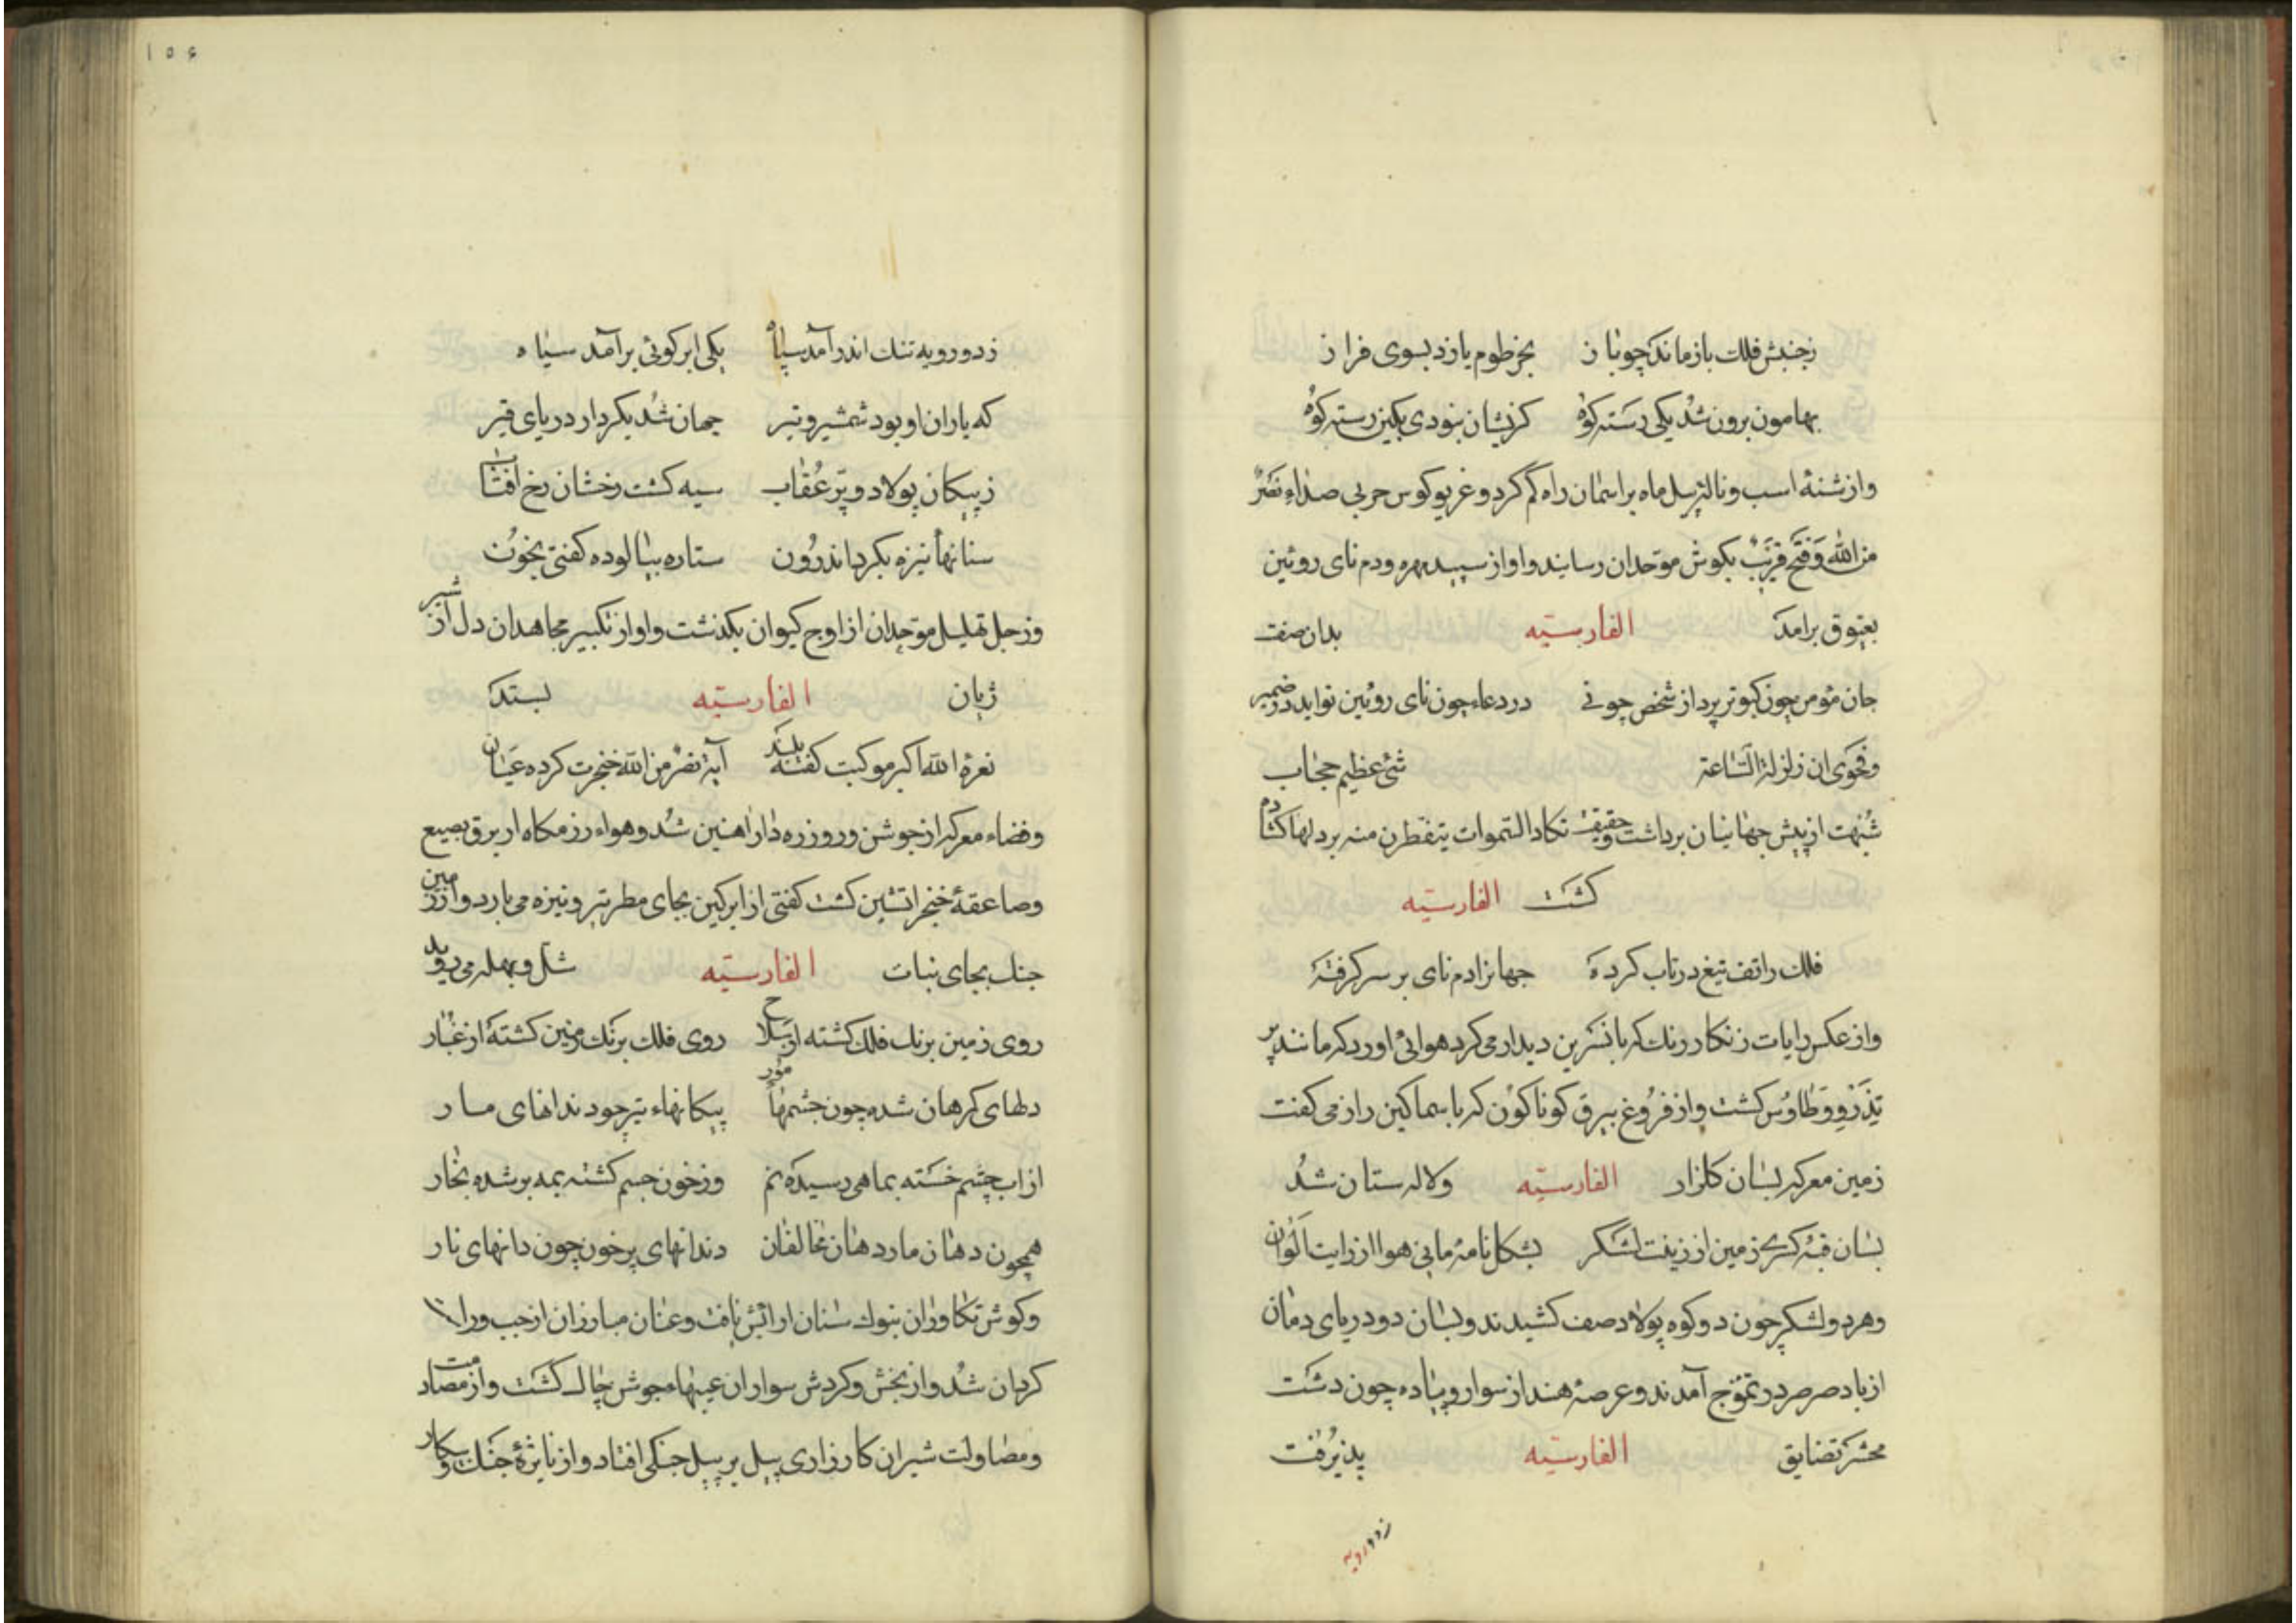 زجنبش فلک بازماند چو باز بخرطوم یازد بسوی فراز
بهامون برون شد یکی دسته کوه کزیشان نبودی بکین رسته کوه
واز شنهٔ اسب و نالهٔ پیل ماه بر اسمان راه کم کرد و غریو کوس حربی صداء نصر
من الله وفتح قریب بکوش موحدان رسانید واواز سپید مهره ودم نای روئین
بعیوق برامد الفارسیّه بدان صفت
جان مومن چون کبوتر پرد از شخص چو نی در دعاء چون نای روئین نواید در ضمیر
وفحوی ان زلزلة السّاعة شئ عظیم حجاب
شبهت از پیش جهانیان برداشت وحقیقت تکاد السّموات یتفطرن منه بر دلها
کشت الفارسیّه
فلک را تف تیغ در تاب کرده جهانرا دم نای بر سر کرفته
واز عکس رایات زنکار رنک که با نسرین دیدار می کرد هوائی اورد که مانند پر
تذرو وطاوس کشت واز فروغ بیرق کوناکون که با سماکین راز می کفت
زمین معرکه بسان کلزار الفارسیّه ولاله ستان شد
بسان قبهٔ کسری زمین از زینت لشکر بشکل نامهٔ مانی هوا از رایت الوان
وهر دو لشکر چون دو کوه پولاد صف کشیدند وبسان دو دریای دمان
از باد صرصر در تموّج آمدند وعرصهٔ هند از سوار وپیاده چون دشت
محشر تضایق الفارسیّه پذیرفت
زدورویه
۱۵۶
زدو رویه تنک اندر آمد سپاه یکی ابر کوئی برآمد سیاه
که باران او بود شمشیر وتیر جهان شد بکردار دریای قیر
زپیکان پولاد وپرّ عقاب سیه کشت رخشان رخ افتاب
سنانها نیزه بکرد اندرون ستاره بیالوده کفتی بخون
وزجل تهلیل موحدان از اوج کیوان بکذشت واواز تکبیر مجاهدان دل از شیر
ژیان الفارسیّه بستد
نعرهٔ الله اکبر موکبت کفته بلند آیة نصر من الله خنجرت کرده عیان
وفضاء معرکه از جوشن ور وزره دار اهنین شد وهواء رزمکاه از برق
وصاعقهٔ خنجر اتشین کشت کفتی از ابر کین بجای مطر تیر ونیزه می بارد واز زمین
جنک بجای نبات الفارسیّه شل وبهله می روید
روی زمین برنک فلک کشته از سلاح روی فلک برنک زمین کشته از غبار
دلهای کرهان شده چون چشمهاء مور پیکانهاء تیر چو دندانهای مار
از اب چشم خسته بماهی رسیده نم وزخون جسم کشته بمه بر شده بخار
همچون دهان مار دهان مخالفان دندانهای پر خون چون دانهای نار
وکوش تکاوران بنوک سنان ارایش یافت وعنان مبارزان از چپ وراست
کردان شد واز بخش وکردش سواران عیبهاء جوش چاک کشت واز مصادمت
ومصاولت شیران کارزاری پیل بر پیل جنکی افتاد واز نایرهٔ جنک وپیکار